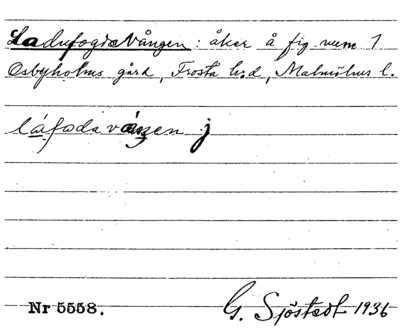 Ladufogdevången: åker å fig. num 1
Osbyholms gård, Frosta h:d, Malmöhus l.
láfodavángen j
Nr 5558.
G. Sjöstedt 1936